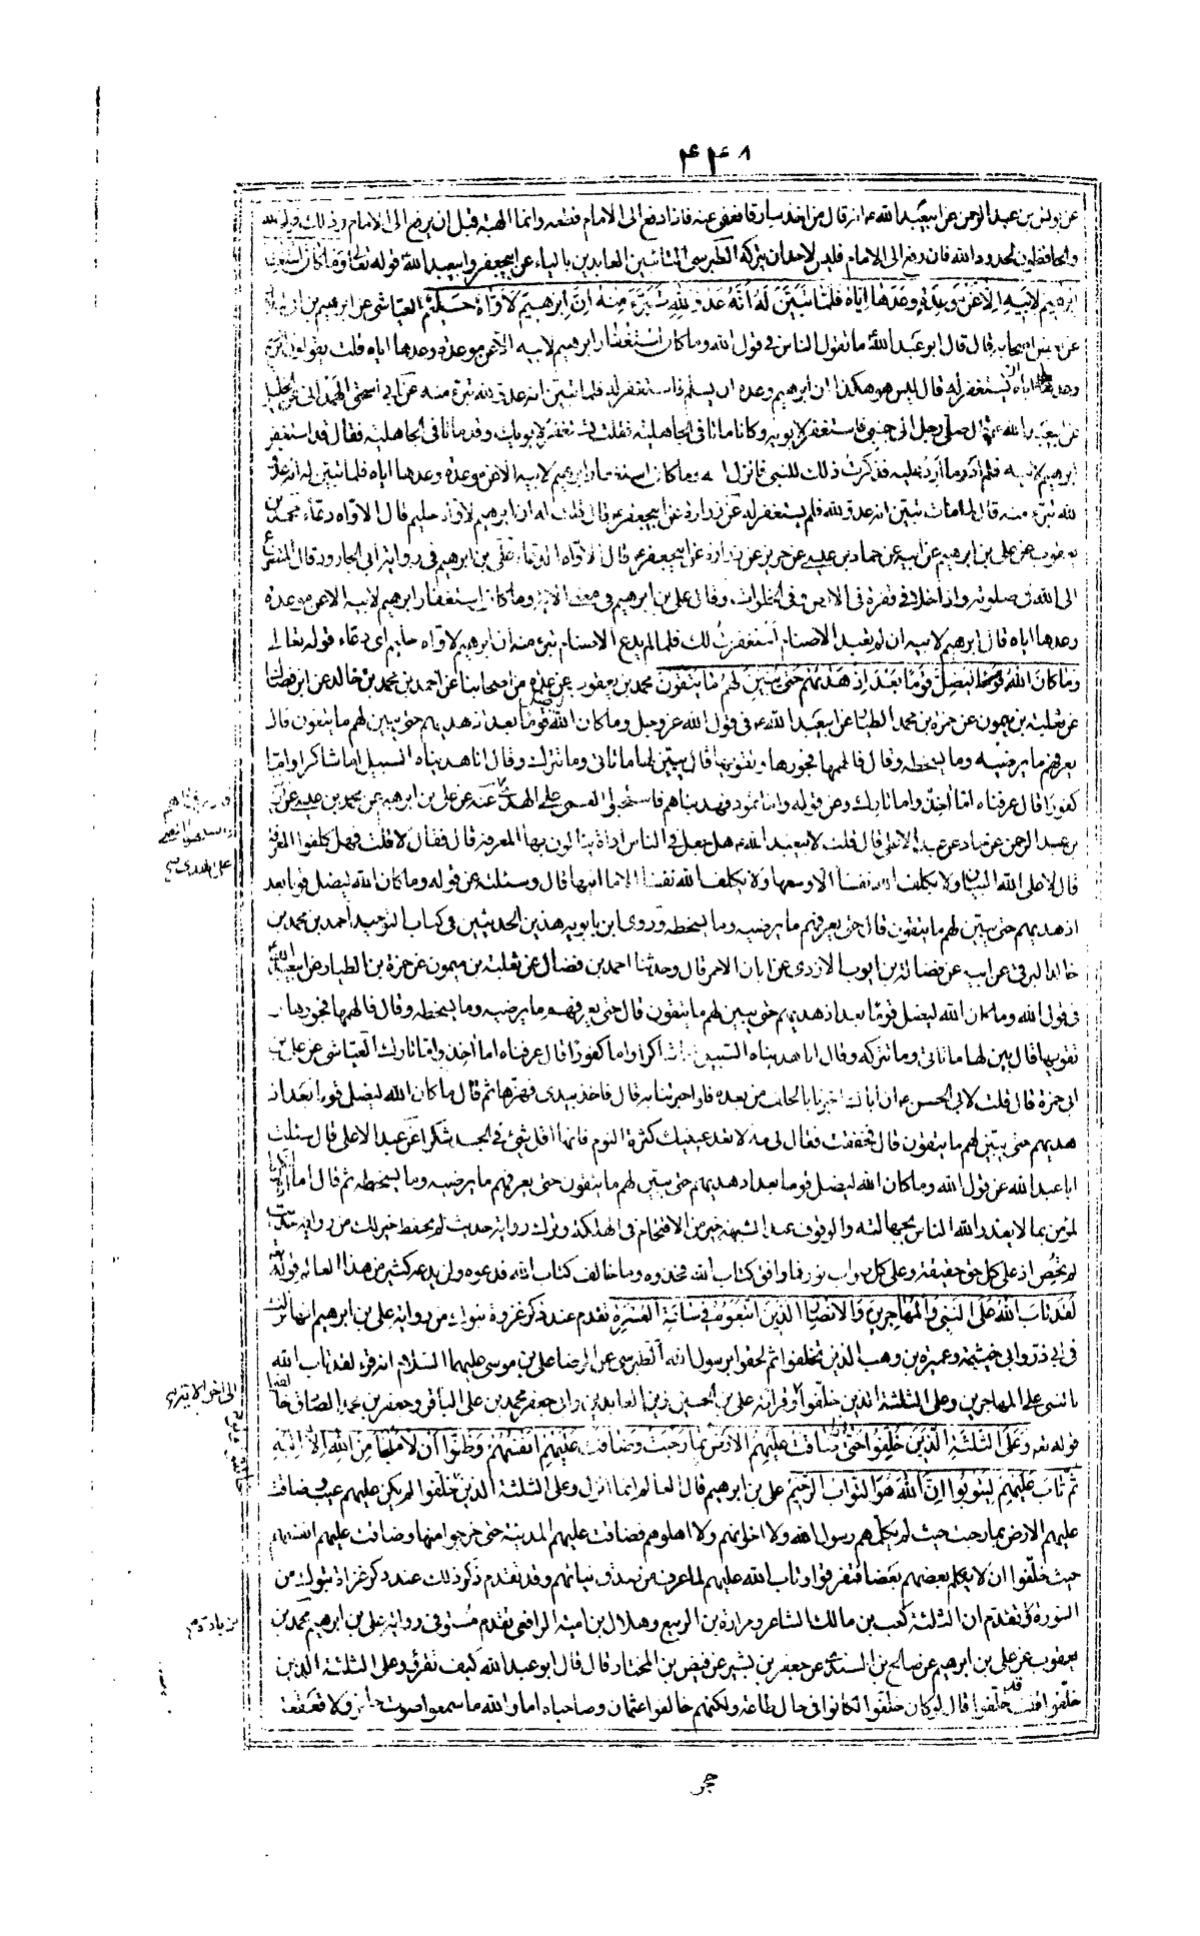 ٤٤٨
عن يونس بن عبد الرحمن عن ابيعبد الله ع انه قال من اخذ سارقا فعفى عنه فاذا رفع الى الامام قطعه وانما الهبة قبل ان يرفع الى الامام وذلك قول الله
والحافظون لحدود الله فان رفع الى الامام فليس لاحد ان يتركه الطبرسى التائبين العابدين بالياء عن ابيجعفر وابيعبد الله قوله تعالى وما كان استغفار
ابرهيم لابيه الا عن موعدة وعدها اياه فلما تبين له انه عدو لله تبرء منه ان ابرهيم لاواه حليم العياشى عن ابرهيم بن
عن بعض اصحابه قال قال ابو عبد الله ما تقول الناس فى قول الله وما كان استغفار ابرهيم لابيه الا عن موعدة وعدها اياه قلت يقولون ابرهيم
وعد اباه ليستغفر له قال ليس هو هكذا ان ابرهيم وعده ان يسلم فاستغفر له فلما تبين انه عدو لله تبرء منه عن ابى اسحق الهمدانى عن الخليل
عن ابيعبد الله ع قال صلى رجل الى جنبى فاستغفر لابويه وكانا ماتا فى الجاهلية فقلت تستغفر لابويك وقد ماتا فى الجاهلية فقال قد استغفر
ابرهيم لابيه فلم ادر ما ارد عليه فذكرت ذلك للنبى فانزل الله وما كان استغفار ابرهيم لابيه الا عن موعدة وعدها اياه فلما تبين له انه عدو
لله تبرء منه قال لما مات تبين انه عدو لله فلم يستغفر له عن زرارة عن ابيجعفر ع قال قلت له ان ابرهيم لاواه حليم قال الاواه دعاء محمد بن
يعقوب عن على بن ابرهيم عن ابيه عن حماد بن عيسى عن حريز عن زرارة عن ابيجعفر ع قال الاواه الدعاء على بن ابرهيم فى رواية ابى الجارود قال المتضرع
الى الله فى صلوته واذا خلا فى قفرة فى الارض وفى الخلوات وقال على بن ابرهيم فى معنى الاية وما كان استغفار ابرهيم لابيه الا عن موعدة
وعدها اياه قال ابرهيم لابيه ان لم تعبد الاصنام استغفرت لك فلما لم يدع الاصنام تبرئ منه ان ابرهيم لاواه حليم اى دعاء قوله تعالى
وما كان الله ليضل قوما بعد اذ هديهم حتى يبين لهم ما يتقون محمد بن يعقوب عن عدة من اصحابنا عن احمد بن محمد بن خالد عن ابن فضال
عن ثعلبة بن ميمون عن حمزة بن محمد الطيار عن ابيعبد الله ع فى قول الله عز وجل وما كان الله ليضل قوما بعد اذ هديهم حتى يبين لهم ما يتقون قال
يعرفهم ما يرضيه وما يسخطه وقال فالهمها فجورها وتقويها قال يبين لها ما تاتى وما تترك وقال انا هديناه السبيل اما شاكرا واما
كفورا قال عرفناه اما اخذ واما تارك وعن قوله واما ثمود فهديناهم فاستحبوا العمى على الهدى عنه عن على بن ابرهيم عن محمد بن عيسى عن يونس
بن عبد الرحمن عن حماد عن عبد الاعلى قال قلت لابيعبد الله ع هل جعل فى الناس اداة ينالون بها المعرفة قال فقال لا قلت فهل كلفوا المعرفة
قال لا على الله البيان ولا يكلف الله نفسا الا وسعها ولا يكلف الله نفسا الا ما اتيها قال وسئلته عن قوله وما كان الله ليضل قوما بعد
اذ هديهم حتى يبين لهم ما يتقون قال حتى يعرفهم ما يرضيه وما يسخطه وروى ابن بابويه هذين الحديثين فى كتاب التوحيد احمد بن محمد بن
خالد البرقى عن ابيه عن فضالة بن ايوب الازدى عن ابان الاحمر قال وحدثنا احمد بن فضال عن ثعلبة بن ميمون عن حمزة بن الطيار عن ابيعبد الله
فى قول الله وما كان الله ليضل قوما بعد اذ هديهم حتى يبين لهم ما يتقون قال حتى يعرفهم ما يرضيه وما يسخطه وقال فالهمها فجورها و
تقويها قال يبين لها ما تاتى وما تتركه وقال انا هديناه السبيل اما شاكرا واما كفورا قال عرفناه اما اخذ واما تارك العياشى عن على بن
ابى حمزة قال قلت لابى الحسن ع ان اباك اخبرنا بالخلف من بعده فلو اخبرتنا به قال فاخذ بيدى فهزها ثم قال ما كان الله ليضل قوما بعد اذ
هديهم حتى يبين لهم ما يتقون قال فخفقت فقال لى مه لا تعد عينيك كثرة النوم فانها اقل شئ فى الجسد شكرا عن عبد الاعلى قال سئلت
ابا عبد الله عن قول الله وما كان الله ليضل قوما بعد اذ هديهم حتى يبين لهم ما يتقون حتى يعرفهم ما يرضيه وما يسخطه ثم قال اما
لمؤمن بما لا يعذر الله الناس بجهالته والوقوف عند الشبهة خير من الاقتحام فى الهلكة وترك رواية حديث لم يحفظ خير لك من رواية حديث
لم تحص ان على كل حق حقيقة وعلى كل صواب نورا فما وافق كتاب الله فخذوه وما خالف كتاب الله فدعوه ولن يدعه كثير من هذا العالم قوله تعالى
لقد تاب الله على النبى والمهاجرين والانصار الذين اتبعوه فى ساعة العسرة تقدم عند ذكر غزوة تبوك من رواية على بن ابرهيم انها نزلت
فى ابى ذر وابى خيثمة وعميرة بن وهب الذين تخلفوا ثم لحقوا برسول الله الطبرسى عن الرضا على بن موسى عليهما السلام انه قرء لقد تاب الله
بالنبى على المهاجرين وعلى الثلثة الذين خلفوا وقراءة على بن الحسين زين العابدين وابى جعفر محمد بن على الباقر وجعفر بن محمد الصادق خالفوا
قوله تعالى وعلى الثلثة الذين خلفوا حتى اذا ضاقت عليهم الارض بما رحبت وضاقت عليهم انفسهم وظنوا ان لا ملجا من الله الا اليه
ثم تاب عليهم ليتوبوا ان الله هو التواب الرحيم على بن ابرهيم قال العالم انما انزل وعلى الثلثة الذين خالفوا ولو خلفوا لم يكن عليهم عيب ضاقت
عليهم الارض بما رحبت حيث لم يكلمهم رسول الله ولا اخوانهم ولا اهلوهم فضاقت عليهم المدينة حتى خرجوا منها وضاقت عليهم انفسهم
حيث حلفوا ان لا يكلم بعضهم بعضا فتفرقوا وتاب الله عليهم لما عرف من صدق نياتهم وقد تقدم ذكر ذلك عند ذكر غزاة تبوك من
السورة وتقدم ان الثلثة كعب بن مالك الشاعر ومرارة بن الربيع وهلال بن امية الرافعى تقدم مستوفى فى رواية على بن ابرهيم محمد بن
يعقوب عن على بن ابرهيم عن صالح بن السندى عن جعفر بن بشير عن فيض بن المختار قال قال ابو عبد الله كيف تقرؤ وعلى الثلثة الذين
خلفوا قلت خلفوا قال لو كان خلفوا لكانوا فى حال طاعة ولكنهم خالفوا عثمان وصاحباه اما والله ما سمعوا صوت حافر ولا قعقعة
حجر